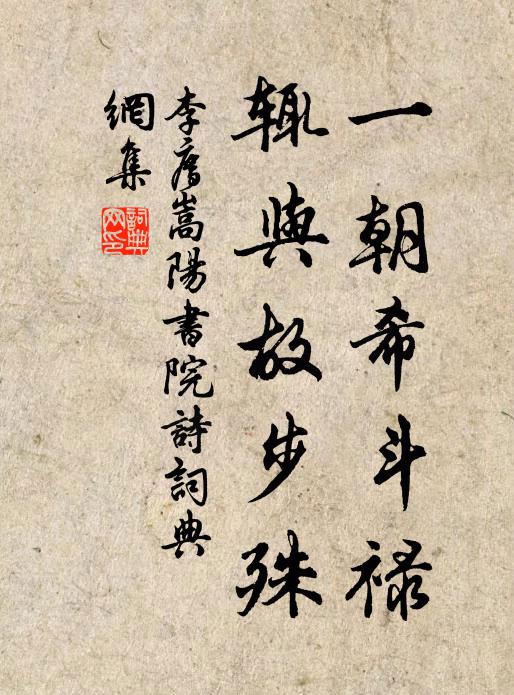 一朝希斗禄
輒與故步殊
李廌嵩陽書院詩詞典
網集
詞典
网印